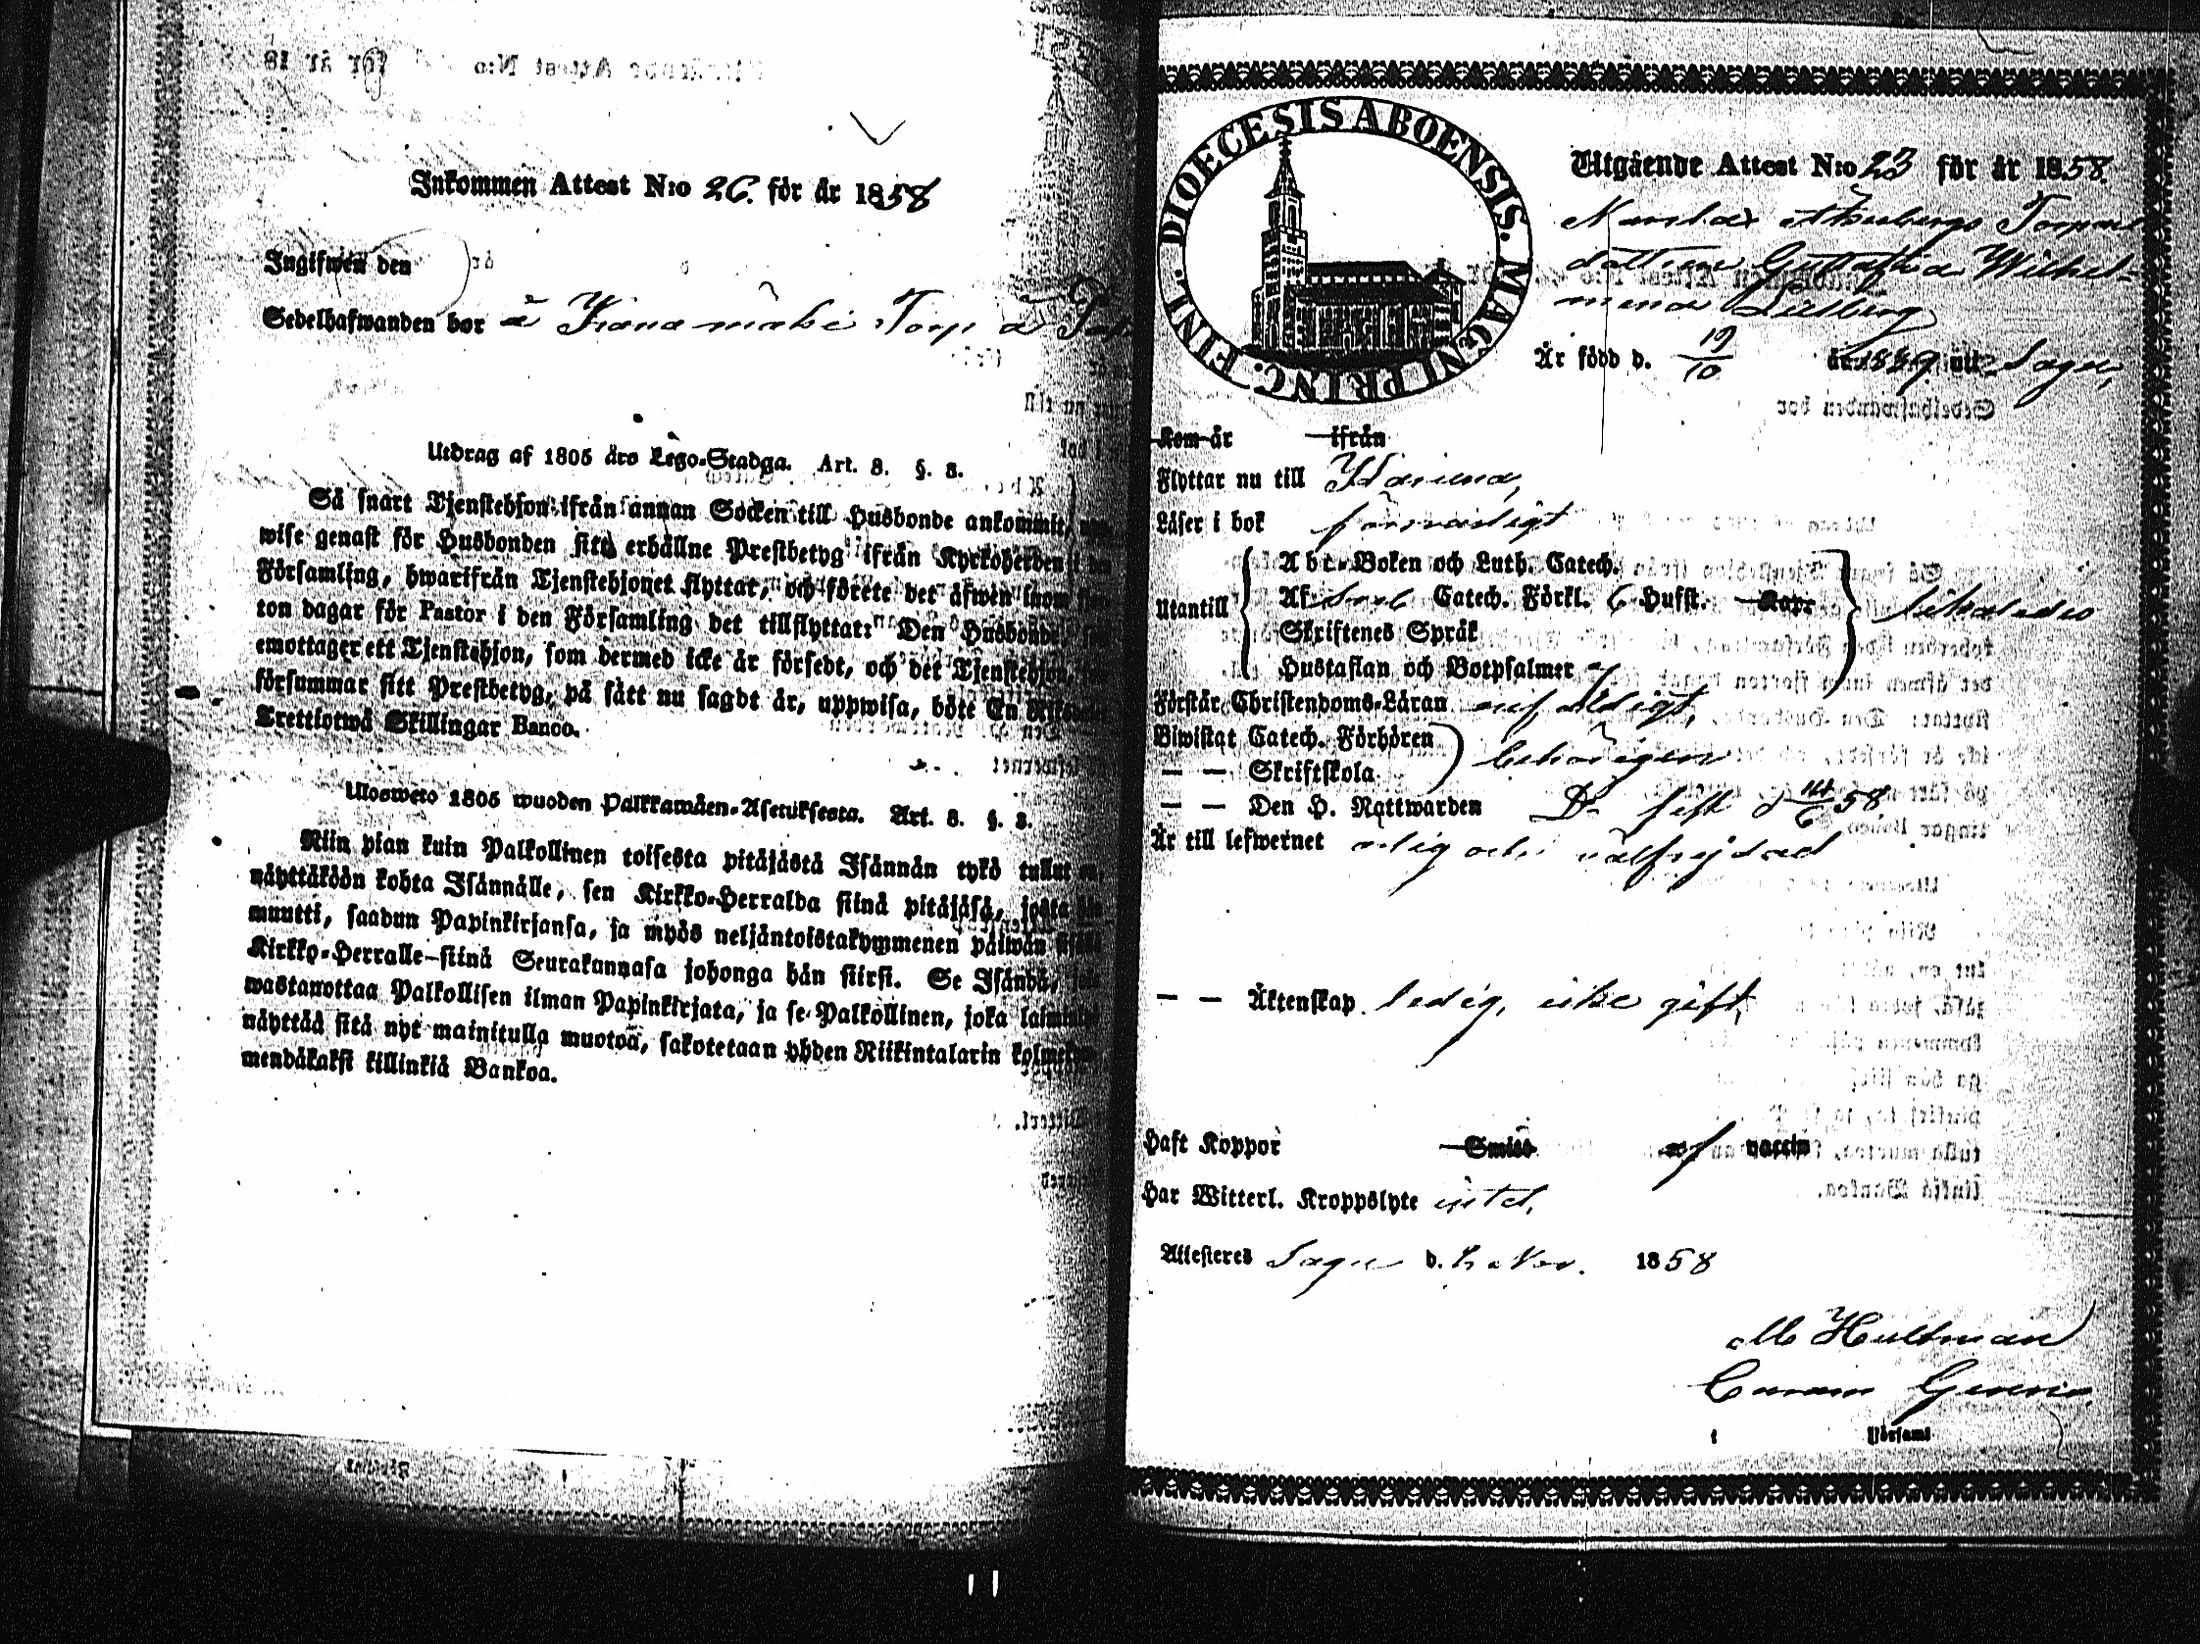 Inkommen Attest N:o 26. för år 1858
Ingifwen den
Sedelhafwanden bor å Torp å
Utdrag af 1805 års Lego-Stadga. Art. 8. §. 3.
Så snart Tjenstehjon ifrån annan Socken till Husbonde ankommit,
wise genast för Husbonden sitt erhållne Prestbetyg ifrån Kyrkoherden i den
Församling, hwarifrån Tjenstehjonet flyttar, och förete det äfwen inom
ton dagar för Pastor i den Församling det tillflyttat: Den Husbonde,
emottager ett Tjenstehjon, som dermed icke är försedt, och det Tjenstehjon,
försummar sitt Prestbetyg, på sätt nu sagdt är, uppwisa, böte En
Trettiotwå Skillingar Banco.
Ulosweto 1805 wuoden Palkkawäen-Asetuksesta. Art. 8. §. 3.
Niin pian kuin Palkollinen toisesta pitäjästä Isännän tykö tullut on,
näyttäköön kohta Isännälle, sen Kirkko-Herralda siinä pitäjäsä, josta
muutti, saadun Papinkirjansa, ja myös neljäntoistakymmenen päiwän
Kirkko-Herralle siinä Seurakunnasa johonga hän siirsi. Se Isändä,
wastanottaa Palkollisen ilman Papinkirjata, ja se Palkollinen, joka
näyttää sitä nyt mainitulla muotoa, sakotetaan yhden Riikintalarin
mendäkaksi killinkiä Bankoa.
DIOECESIS ABOENSIS. MAGNI PRINC. FINL.
Utgående Attest N:o 23 för år 1858.
Torpare
dottren Gustafva Wilhel-
mina
Är född d. 19/10 år 1839 uti Sagu,
Kom år ifrån
Flyttar nu till
Läser i bok försvarligt
Utantill
Abc-Boken och Luth. Catech.
Af Catech. Förkl. 6 Hufst. Kap:
Skriftenes Språk
Hustaflan och Botpsalmer
likaledes
Förstår Christendoms-Läran enfaldigt,
Biwistat Catech. Förhören
— — Skriftskola
behörigen
— — Den H. Nattwarden D:o sist d 58
Är till lefwernet ärlig och välfrejdad
— — Äktenskap ledig, icke gift,
Haft Koppor Smiss af vaccin
Har Witterl. Kroppslyte intet,
Attesteras Sagu d. Nov. 1858
Hultman
i Församl